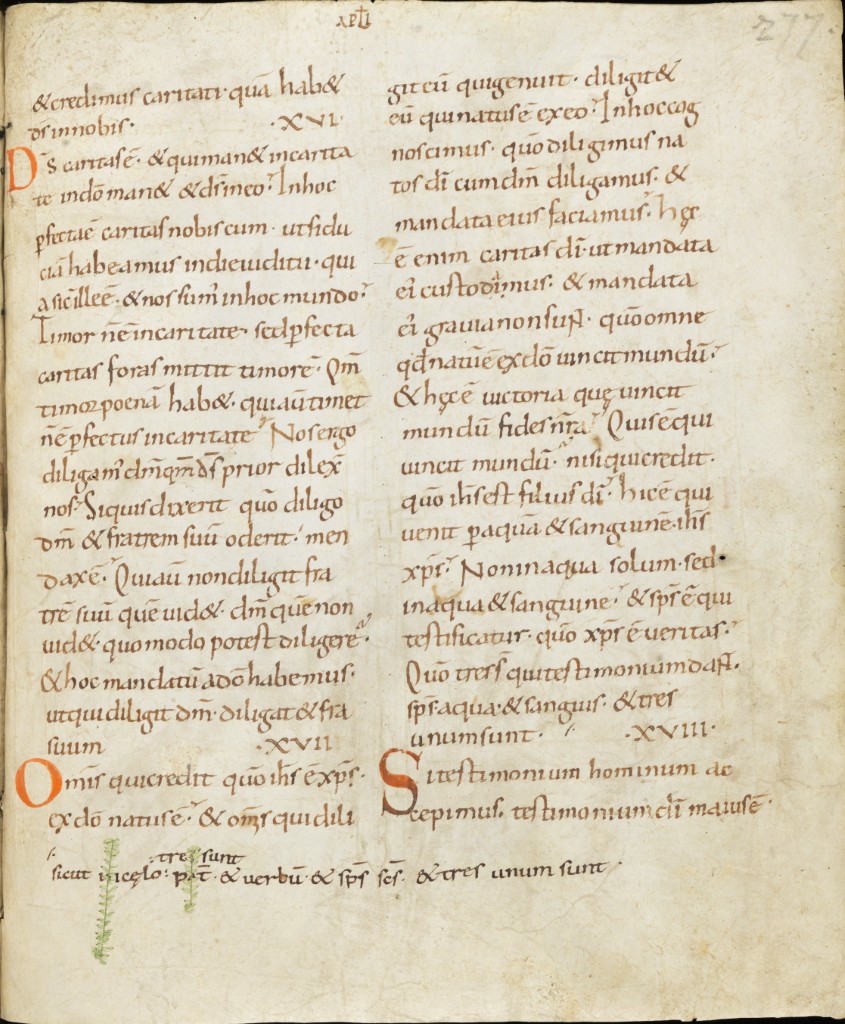 APLI
277
& credimus caritati· quā hab&
ds̄ innobis· ·XVI·
Ds̄ caritasē· & quiman& incarita
te indō man& & ds̄ineo· Inhoc
pfectaē caritas nobiscum· utfidu
ciā habeamus indieiudicii· qui
a sic̄illeē· & nos sum' inhoc mundo·
Timor nēē incaritate· sedpfecta
caritas foras mittit timorē· Qm̄
timor poenā hab&· quiaūtimet
nēē pfectus incaritate Nosergo
diligam' dm̄ qm̄ ds̄ prior dilex̄
nos· Siquis dixerit quō diligo
dm̄ & fratrem suū oderit· men
daxē· Quiaū nondiligit fra
trē suū quē uid&· dm̄ quēnon
uid&· quomodo potest diligere·
& hoc mandatū adō habemus·
utqui diligit dm̄· diligat & fra
suum ·XVII
Omīs quicredit quō ih̄s ē xp̄s·
exdō natusē· & om̄s quidili
git eū quigenuit· diligit &
eū quinatusē exeo· Inhoc cog
noscimus· quō diligimus na
tos dī cum dm̄ diligamus· &
mandata eius faciamus· Hęc
ē enim caritas dī· ut mandata
ei' custodimus· & mandata
ei' grauia nonsuɴᴛ· quō omne
qd̄ natūē exdō uincit mundū·
& hęcē uictoria quę uincit
mundū fides nr̄a Quisēqui
uincit mundū· nisi quicredit·
quō ih̄s est filius dī· hicē qui
uenit paquā & sanguinē· ih̄s
xp̄s· Non inaqua solum· sed
inaqua & sanguine· & sp̄s ē qui
testificatur· quō xp̄s ē ueritas·
Quō tres s̄ quitestimonium daɴᴛ·
sp̄s· aqua· & sanguis· & tres
unum sunt· ·XVIII·
Si testimonium hominum ac
cepimus· testimonium dī maiusē·
tres sunt
sicut in cęlo· pat̄· & uerbū· & sp̄s sc̄s· & tres unum sunt·